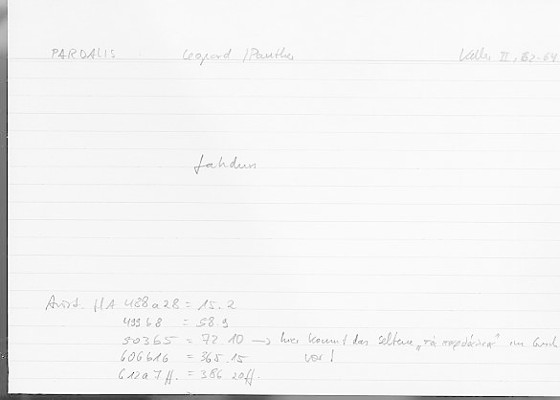 PARDALIS Leopard / Panther Keller II, 62-64
fahdun
Arist. HA 488a28 = 15.2
499b8 = 58.9
503b5 = 72.10 → hier kommt das seltene „τὰ παρδάλια“ im
606b16 = 365.15 vor!
612a7ff. = 386.20ff.